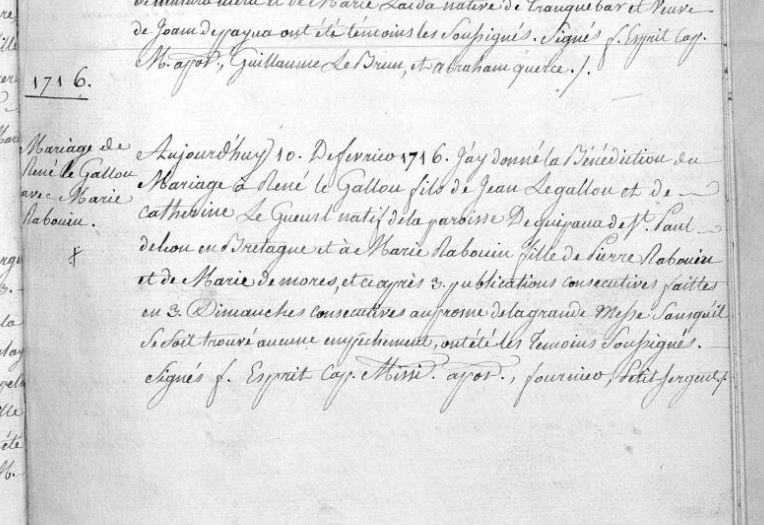 et de Marie Laida native de Tranquebar et Veuve
de Joam ont été témoins les Soussignés. Signés f. Esprit Cap.
M. apos., Guillaume Le Brun, et abraham querce./.
1716.
Mariage de
René le Gallou
avec Marie
Rabouin.
Aujourd'huy 10. De fevrier 1716. J'ay donné la Bénédiction du
Mariage à René le Gallou fils de Jean Legallou et de
Catherine Le Gueusl natif de la paroisse De quipaua de St. Paul
deleon en Bretagne et à Marie Rabouin fille de Pierre Rabouin
et de Marie demores, et ce après 3. publications consecutives faittes
en 3. Dimanches consecutives au prosne de la grande Messe Sans qu'il
se soit trouvé aucune empechement, ont été les Temoins Soussignés.
Signés f. Esprit Cap. Miss. apos., fournier, Petit sergent./.